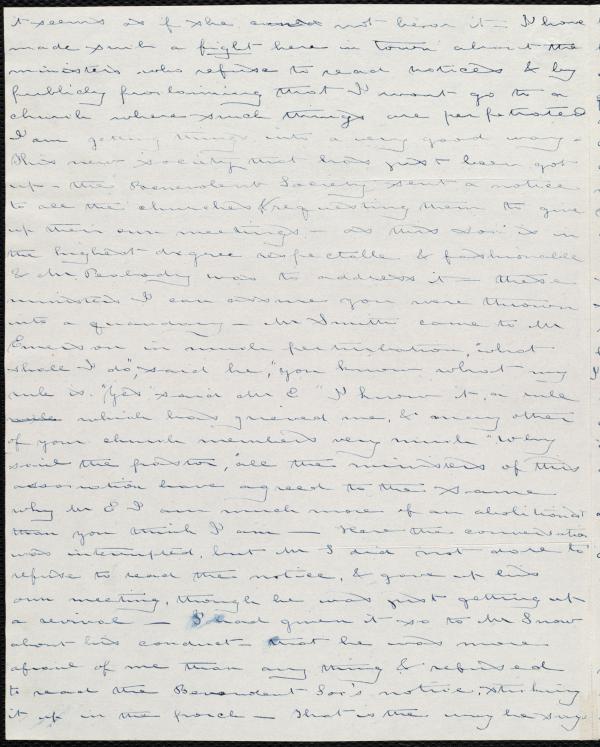 it seems as if she could not bear it — I have
made such a fight here in town about the
ministers who refuse to read notices & by
publicly proclaiming that I wont go to a
church where such things are perpetrated
I am getting things into a very good way —
This new society that has just been got
up — the Benevolent Society sent a notice
to all the churches requesting them to give
up their own meetings — as this Soc' is in
the highest degree respectable & fashionable
& Mr. Peabody was to address it — these
ministers I can assure you were thrown
into a quandary — Mr Smith came to Mr
Emerson in much perturbation, "what
shall I do", said he, "you know what my
rule is. "Yes" said Mr E "I know it, a rule
which has grieved me, & many other
of your church members very much "Why
said the pastor, "all the ministers of this
association have agreed to the same
why Mr E I am much more of an abolitionist
than you think I am — Here the conversation
was interrupted, but Mr S did not dare to
refuse to read the notice, & gave up his
own meeting, though he was just getting up
a revival — I had given it so to Mr Snow
about his conduct — that he was more
afraid of me than any thing & refused
to read the Benevolent Soc's notice, sticking
it up in the porch — That is the way he says